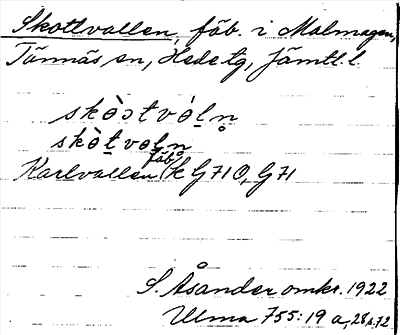 Skottvallen, fäb. i Malmagen,
Tännäs sn, Hede tg, Jämtl. l.
skò̀ɔtvò́l̲n̥
skò̀t̲vol̲n̥
Karlvallen fäb. (K G71 O, G71
S. Åsander omkr. 1922
Ulma 755:19 a, 28 s. 72